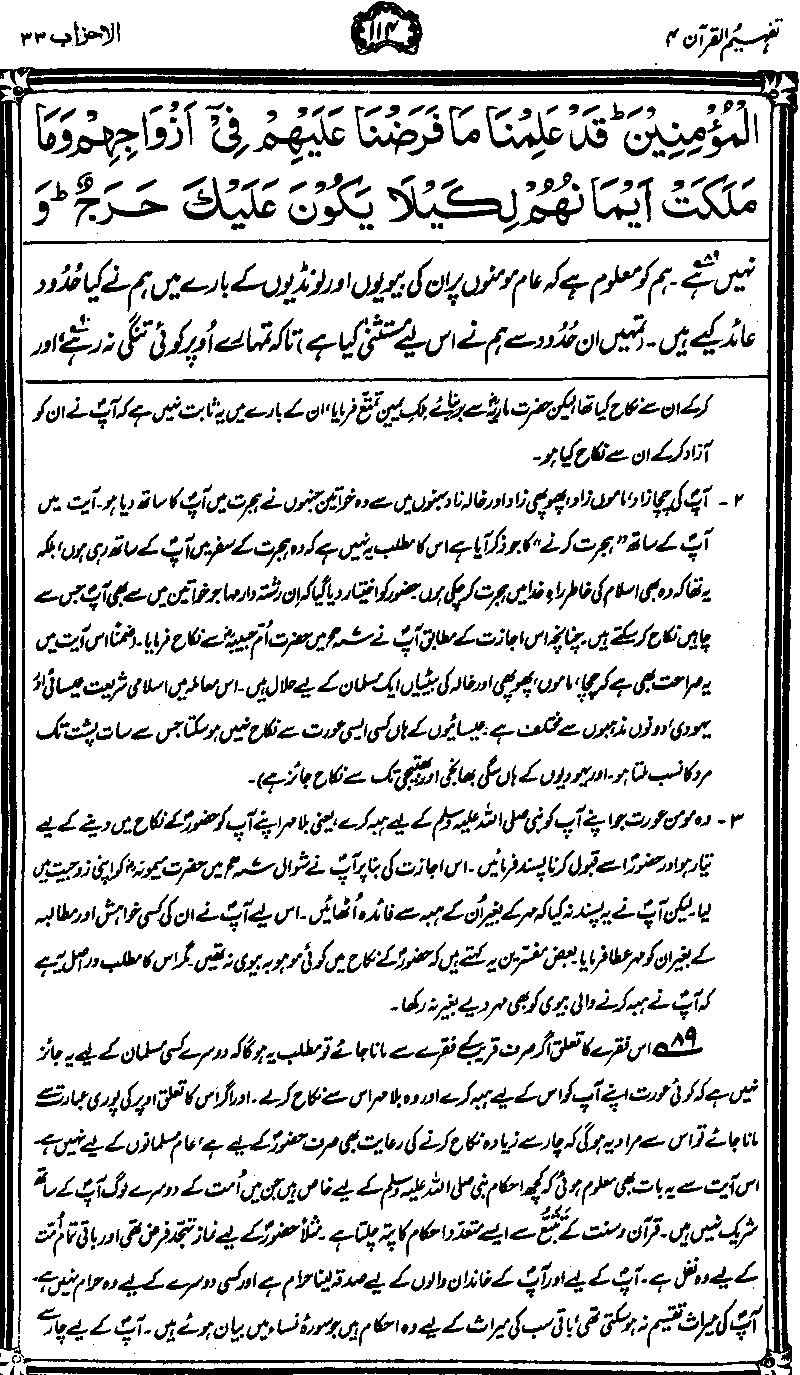 تفہیم القرآن ۴
۱۱۴
الاحزاب ۳۳
الْمُؤْمِنِيْنَ ؕ قَدْ عَلِمْنَا مَا فَرَضْنَا عَلَيْهِمْ فِيْۤ اَزْوَاجِهِمْ وَمَا
مَلَكَتْ اَيْمَانُهُمْ لِكَيْلَا يَكُوْنَ عَلَيْكَ حَرَجٌ ؕ وَ
نہیں ہے۸۹۔ ہم کو معلوم ہے کہ عام مومنوں پر ان کی بیویوں اور لونڈیوں کے بارے میں ہم نے کیا حُدُود
عائد کیے ہیں۔ (تمہیں ان حُدُود سے ہم نے اس لیے مُستثنیٰ کیا ہے) تاکہ تمہارے اُوپر کوئی تنگی نہ رہے۹۰، اور
کرکے ان سے نکاح کیا تھا، لیکن حضرت ماریہؓ سے بربنائے ملکِ یمین تمتع فرمایا، ان کے بارے میں یہ ثابت نہیں ہے کہ آپؐ نے ان کو
آزاد کرکے ان سے نکاح کیا ہو۔
۲ ۔ آپؐ کی چچازاد، ماموں زاد، پھوپھی زاد اور خالہ زاد بہنوں میں سے وہ خواتین جنہوں نے ہجرت میں آپؐ کا ساتھ دیا ہو۔ آیت میں
آپؐ کے ساتھ ”ہجرت کرنے“ کا جو ذکر آیا ہے اس کا مطلب یہ نہیں ہے کہ وہ ہجرت کے سفر میں آپؐ کے ساتھ رہی ہوں، بلکہ
یہ تھا کہ وہ بھی اسلام کی خاطر راہِ خدا میں ہجرت کرچکی ہوں۔ حضورؐ کو اختیار دیا گیا کہ ان رشتہ دار مہاجر خواتین میں سے بھی آپؐ جس سے
چاہیں نکاح کرسکتے ہیں۔ چنانچہ اس اجازت کے مطابق آپؐ نے ۷ھ میں حضرت اُمّ حبیبہؓ سے نکاح فرمایا۔ (ضمناً اس آیت میں
یہ صراحت بھی ہے کہ چچا، ماموں، پھوپھی اور خالہ کی بیٹیاں ایک مسلمان کے لیے حلال ہیں۔ اس معاملہ میں اسلامی شریعت عیسائی اور
یہودی، دونوں مذہبوں سے مختلف ہے۔ عیسائیوں کے ہاں کسی ایسی عورت سے نکاح نہیں ہوسکتا جس سے سات پشت تک
مرد کا نسب ملتا ہو۔ اور یہودیوں کے ہاں سگی بھانجی اور بھتیجی تک سے نکاح جائز ہے)۔
۳ ۔ وہ مومن عورت جو اپنے آپ کو نبی صلی اللہ علیہ وسلم کے لیے ہبہ کرے، یعنی بلا مہر اپنے آپ کو حضورؐ کے نکاح میں دینے کے لیے
تیار ہو اور حضورؐ اسے قبول کرنا پسند فرمائیں۔ اس اجازت کی بنا پر آپؐ نے شوال ۷ھ میں حضرت میمونہؓ کو اپنی زوجیت میں
لیا۔ لیکن آپؐ نے یہ پسند نہ کیا کہ مہر کے بغیر اُن کے ہبہ سے فائدہ اُٹھائیں۔ اس لیے آپؐ نے ان کی کسی خواہش اور مطالبہ
کے بغیر ان کو مہر عطا فرمایا۔ بعض مفسّرین یہ کہتے ہیں کہ حضورؐ کے نکاح میں کوئی موہوبہ بیوی نہ تھیں۔ مگر اس کا مطلب دراصل یہ ہے
کہ آپؐ نے ہبہ کرنے والی بیوی کو بھی مہر دیے بغیر نہ رکھا۔
۸۹ اس فقرے کا تعلق اگر صرف قریب کے فقرے سے مانا جائے تو مطلب یہ ہوگا کہ دوسرے کسی مسلمان کے لیے یہ جائز
نہیں ہے کہ کوئی عورت اپنے آپ کو اس کے لیے ہبہ کرے اور وہ بلا مہر اس سے نکاح کرلے۔ اور اگر اس کا تعلق اوپر کی پوری عبارت سے
مانا جائے تو اس سے مراد یہ ہوگی کہ چار سے زیادہ نکاح کرنے کی رعایت بھی صرف حضورؐ کے لیے ہے، عام مسلمانوں کے لیے نہیں ہے۔
اس آیت سے یہ بات بھی معلوم ہوئی کہ کچھ احکام نبی صلی اللہ علیہ وسلم کے لیے خاص ہیں جن میں اُمت کے دوسرے لوگ آپؐ کے ساتھ
شریک نہیں ہیں۔ قرآن و سنت کے تَتَبُّع سے ایسے متعدد احکام کا پتہ چلتا ہے۔ مثلاً حضورؐ کے لیے نماز تہجد فرض تھی اور باقی تمام اُمّت
کے لیے وہ نفل ہے۔ آپؐ کے لیے اور آپؐ کے خاندان والوں کے لیے صدقہ لینا حرام ہے اور کسی دوسرے کے لیے وہ حرام نہیں ہے۔
آپؐ کی میراث تقسیم نہ ہوسکتی تھی، باقی سب کی میراث کے لیے وہ احکام ہیں جو سورۂ نساء میں بیان ہوئے ہیں۔ آپؐ کے لیے چار سے